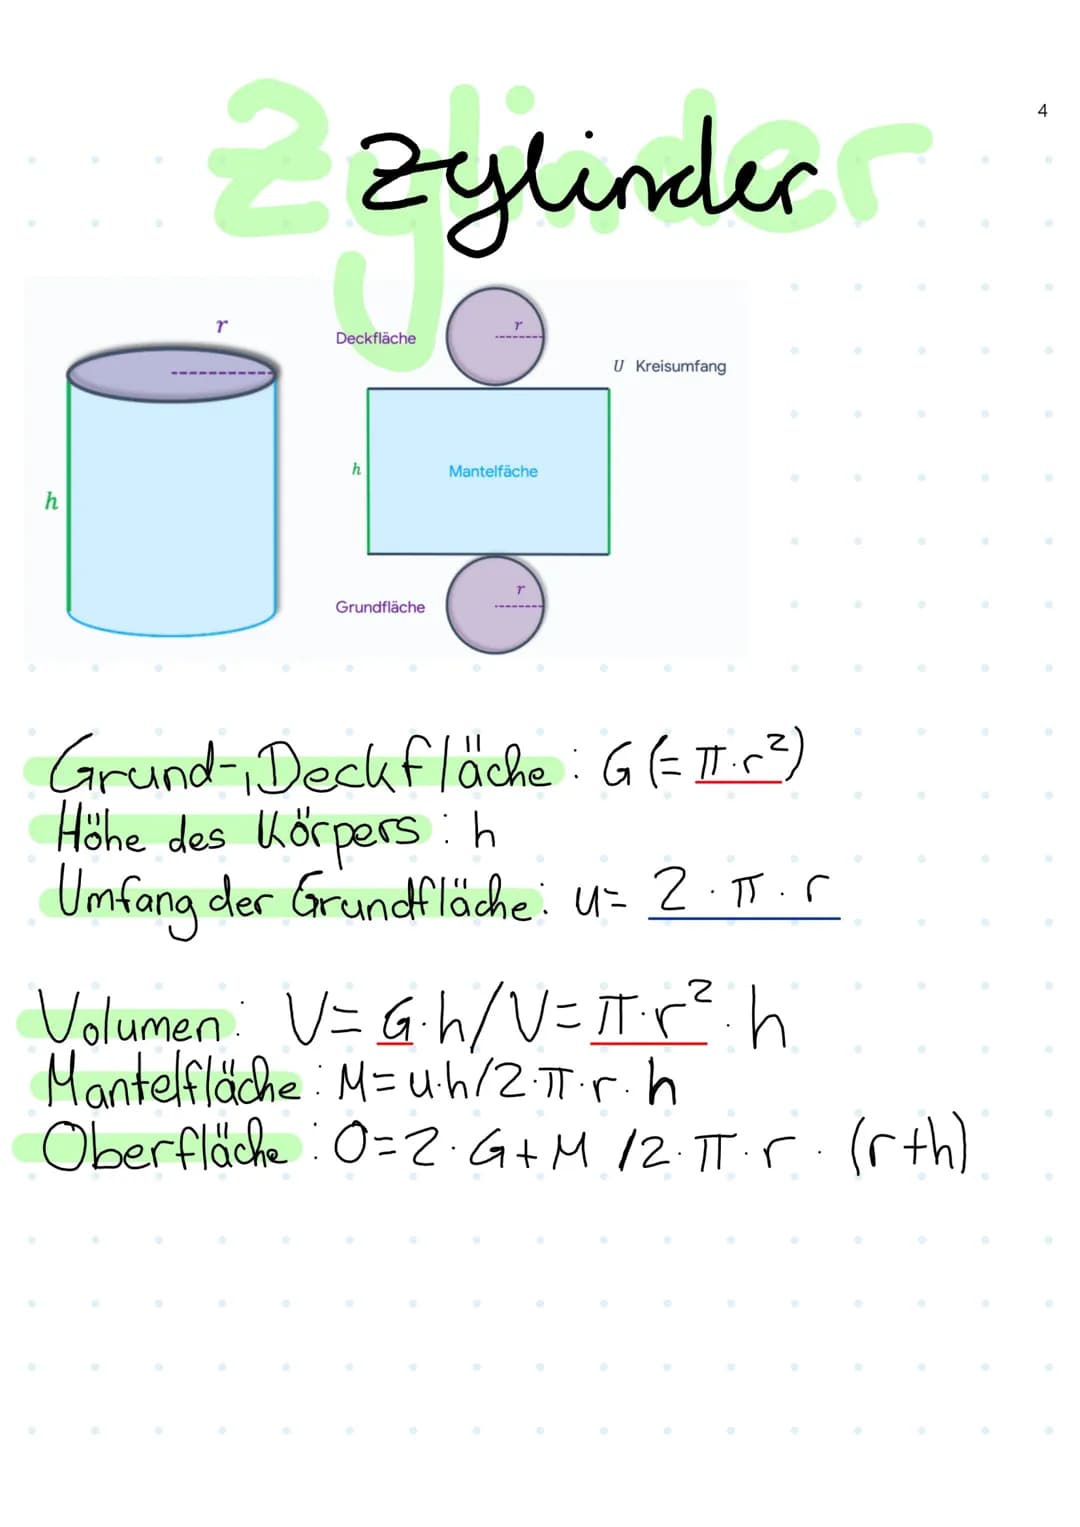 4
Zylinder
Zylinder
r
Deckfläche
r
U Kreisumfang
h
h
Mantelfäche
r
Grundfläche
Grund-, Deckfläche: G (= π·r²)
Höhe des Körpers: h
Umfang der Grundfläche: u= 2·π·r
Volumen: V= G·h/V= π·r²·h
Mantelfläche: M= u·h/2·π·r·h
Oberfläche: O=2·G+M /2·π·r·(r+h)